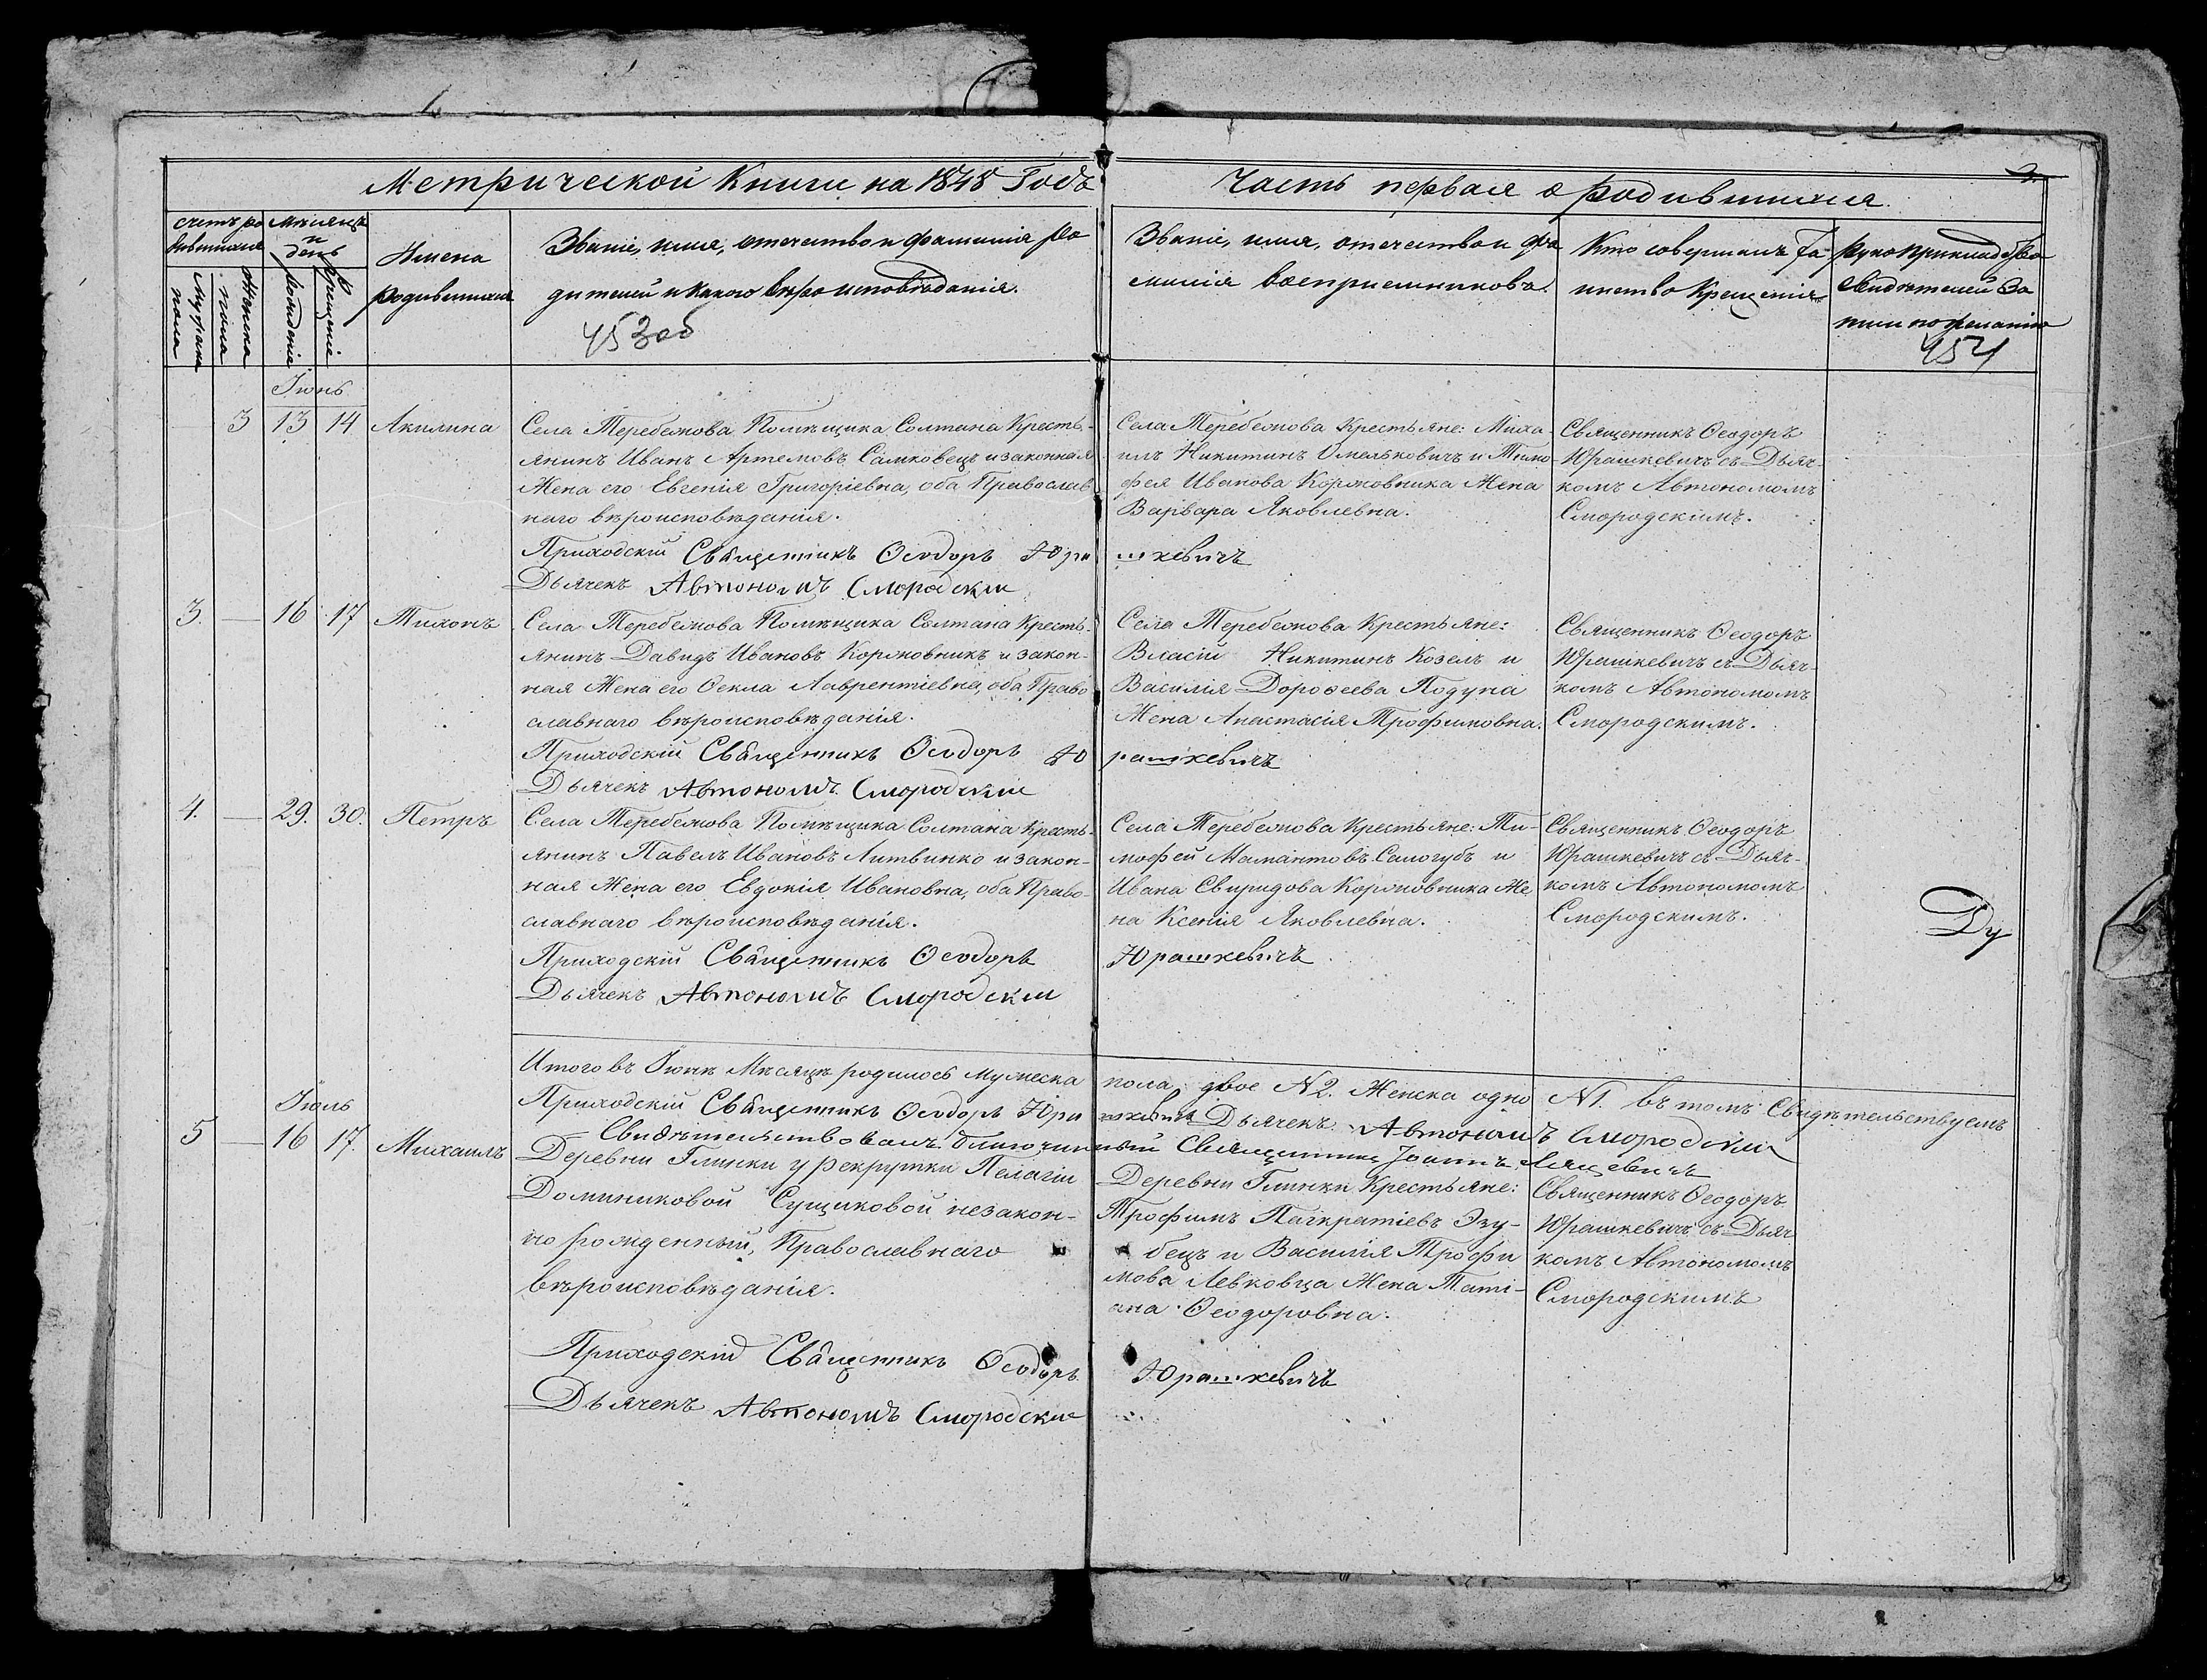 Метрической Книги на 1848 Годъ
Часть первая о родившихся.
2.
счетъ ро
дившихся
Мѣсяцъ
и
день
Мужеска
пола
Женска
пола
рожденіе
крещеніе
Имена
родившихся
Званіе, имя, отечество и фамилія ро
дителей и какого вѣроисповѣданія.
453 об
Званіе, имя, отечество и фа
милія воспріемниковъ.
Кто совершалъ Та-
инство Крещенія
Рукоприкладство
свидѣтелей За
писи по желанію
454
Іюнь
3 13 14 Акилина
Села Теребежова Помѣщика Солтана Кресть-
янинъ Иванъ Артемовъ Самковецъ и законная
Жена его Евгенія Григоріевна, оба Православ
наго вѣроисповѣданія.
Приходскій Священникъ Ѳеодоръ Юра
шкевичъ
Дьячекъ Автономъ Смородскій
Села Теребежова Крестьяне: Миха-
илъ Никитинъ Омельковичъ и Тимо-
фея Иванова Коржовника Жена
Варвара Яковлевна.
Священникъ Ѳеодоръ
Юрашкевичъ съ Дьяч-
комъ Автономомъ
Смородскимъ.
3. — 16 17 Тихонъ
Села Теребежова Помѣщика Солтана Кресть-
янинъ Давидъ Ивановъ Коржовникъ и закон-
ная Жена его Ѳекла Лаврентіевна, оба Право
славнаго вѣроисповѣданія.
Приходскій Священникъ Ѳеодоръ Ю
рашкевичъ
Дьячекъ Автономъ Смородскій
Села Теребежова Крестьяне:
Власій Никитинъ Козелъ и
Василія Дороѳеева Подуна
Жена Анастасія Трофимовна.
Священникъ Ѳеодоръ
Юрашкевичъ съ Дьяч-
комъ Автономомъ
Смородскимъ.
4. — 29. 30. Петръ
Села Теребежова Помѣщика Солтана Кресть-
янинъ Павелъ Ивановъ Литвинко и закон-
ная Жена его Евдокія Ивановна, оба Право-
славнаго вѣроисповѣданія.
Приходскій Священникъ Ѳеодоръ
Юрашкевичъ
Дьячекъ Автономъ Смородскій
Села Теребежова Крестьяне: Ти-
мофей Мамантовъ Самогубъ и
Ивана Свиридова Коржовника Же
на Ксенія Яковлевна.
Священникъ Ѳеодоръ
Юрашкевичъ съ Дьяч-
комъ Автономомъ
Смородскимъ.
Ду
Итого въ Іюнѣ Мѣсяцѣ родилось мужеска пола двое N2. Женска одно N1. въ томъ Свидѣтельствуемъ
Приходскій Священникъ Ѳеодоръ Юрашкевичъ Дьячекъ Автономъ Смородскій
Свидѣтельствовалъ благочинный Священникъ Іоаннъ
Іюль
5 — 16 17. Михаилъ
Деревни Глинки у рекрутки Пелагіи
Доминиковой Сущиковой незакон-
но рожденный, Православнаго
вѣроисповѣданія.
Приходскій Священникъ Ѳеодоръ
Юрашкевичъ
Дьячекъ Автономъ Смородскій
Деревни Глинки Крестьяне:
Трофимъ Панкратіевъ Эзу-
бецъ и Василія Трофи
мова Левковца Жена Таті-
ана Ѳеодоровна.
Священникъ Ѳеодоръ
Юрашкевичъ съ Дьяч
комъ Автономомъ
Смородскимъ